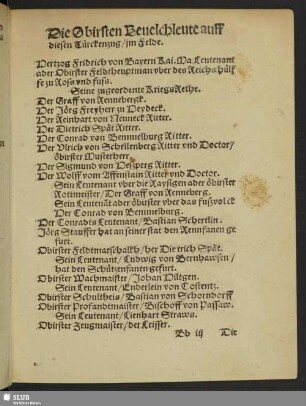 Die Obirsten Beuelchleute auff
diesen Türckenzug / jm Felde.
Hertzog Fridrich von Bayern Kai. Ma. Leutenant
ader Obirster Feldtheuptman vber des Reichs hülf
fe zu Ross vnd fuss.
Seine zugeordente Kriegs Rethe.
Der Graff von Rennebergk.
Her Jörg Freyherr zu Heydeck.
Her Reinhart von Neuneck Ritter.
Her Dietrich Spät Ritter.
Her Conrad von Bemmelburg Ritter.
Her Vlrich von Schellenberg Ritter vnd Doctor /
öbirster Musterherr.
Her Sigmund von Hesperg Ritter.
Her Wolff vom Affenstain Ritter vnd Doctor.
Sein Leutenant vber die Rayssigen ader öbirster
Rottmeister / Der Graff von Renneberg.
Sein Leutenāt ader öbirster vber das fussvolck
Her Conrad von Bemmelburg.
Her Conradts Leutenant / Bastian Schertlin.
Jörg Stauffer hat an seiner stat den Rennfanen ge
furt.
Obirster Feldtmarschalkh / her Dietrich Spät.
Sein Leutenant / Ludwig von Bernhawsen /
hat den Schützenfanen gefurt.
Obirster Wachmaister / Johan Hiltgen.
Sein Leutenant / Enderlein von Costentz.
Obirster Schultheis / Bastian von Schorndorff
Obirster Profandtmaister / Bischoff von Passaw.
Sein Leutenant / Lienhart Straws.
Obirster Zeugmaister / der Leisser.
Bb iij Die
SLUB